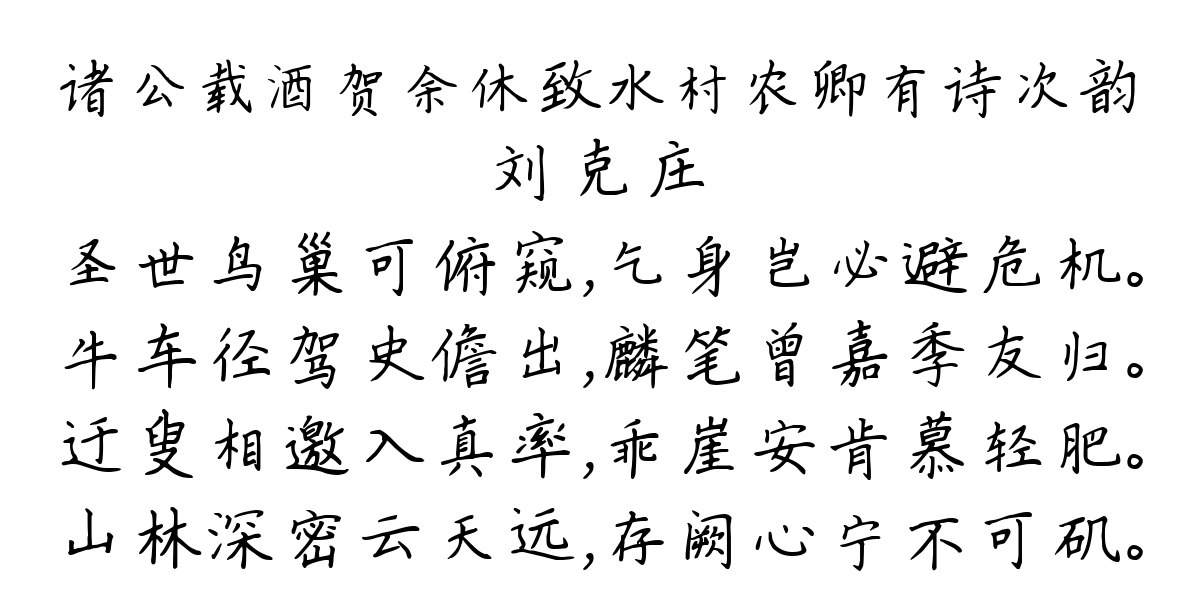 诸公载酒贺余休致水村农卿有诗次韵
刘克庄
圣世鸟巢可俯窥,乞身岂必避危机。
牛车径驾史儋出,麟笔曾嘉季友归。
迂叟相邀入真率,乖崖安肯慕轻肥。
山林深密云天远,存阙心宁不可矶。